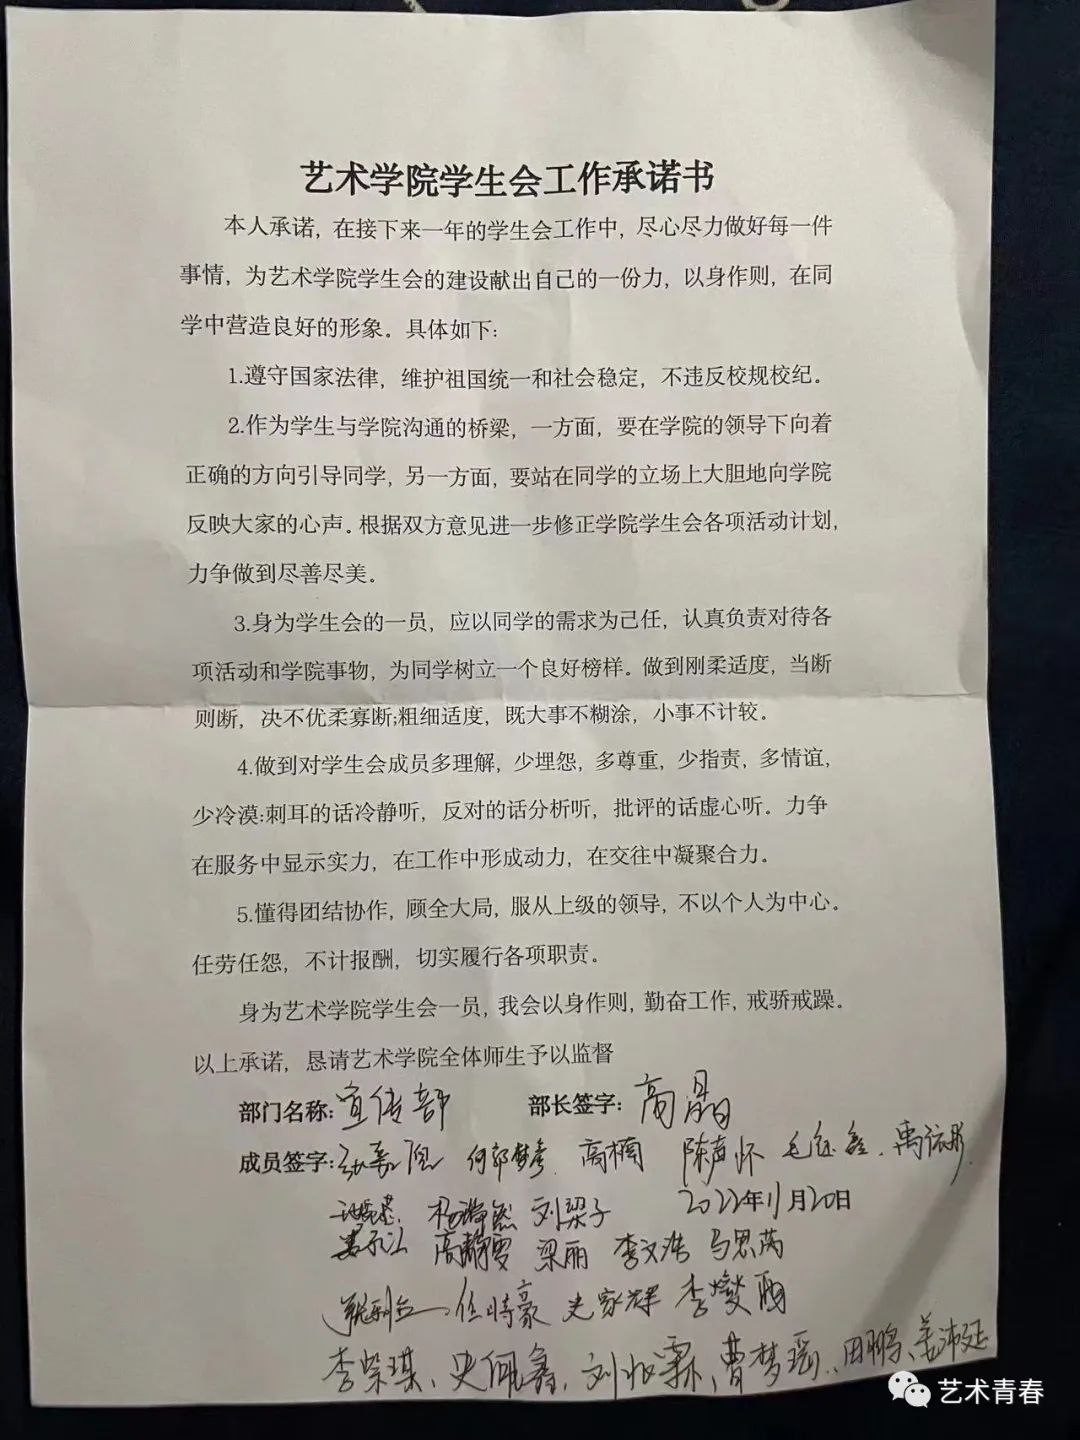 艺术学院学生会工作承诺书
本人承诺，在接下来一年的学生会工作中，尽心尽力做好每一件
事情，为艺术学院学生会的建设献出自己的一份力，以身作则，在同
学中营造良好的形象。具体如下：
1.遵守国家法律，维护祖国统一和社会稳定，不违反校规校纪。
2.作为学生与学院沟通的桥梁，一方面，要在学院的领导下向着
正确的方向引导同学，另一方面，要站在同学的立场上大胆地向学院
反映大家的心声。根据双方意见进一步修正学院学生会各项活动计划，
力争做到尽善尽美。
3.身为学生会的一员，应以同学的需求为己任，认真负责对待各
项活动和学院事物，为同学树立一个良好榜样。做到刚柔适度，当断
则断，决不优柔寡断;粗细适度，既大事不糊涂，小事不计较。
4.做到对学生会成员多理解，少埋怨，多尊重，少指责，多情谊，
少冷漠:刺耳的话冷静听，反对的话分析听，批评的话虚心听。力争
在服务中显示实力，在工作中形成动力，在交往中凝聚合力。
5.懂得团结协作，顾全大局，服从上级的领导，不以个人为中心。
任劳任怨，不计报酬，切实履行各项职责。
身为艺术学院学生会一员，我会以身作则，勤奋工作，戒骄戒躁。
以上承诺，恳请艺术学院全体师生予以监督
部门名称：宣传部 部长签字：高晶
成员签字： 高楠 陈声怀
刘梁子 2022年11月20日
高静雯 梁丽 李文浩 马思芮
任特豪 史家辉 李燮雨
李荣琪、史佩鑫、 曹梦瑶、田鹏、姜沛延
艺术青春